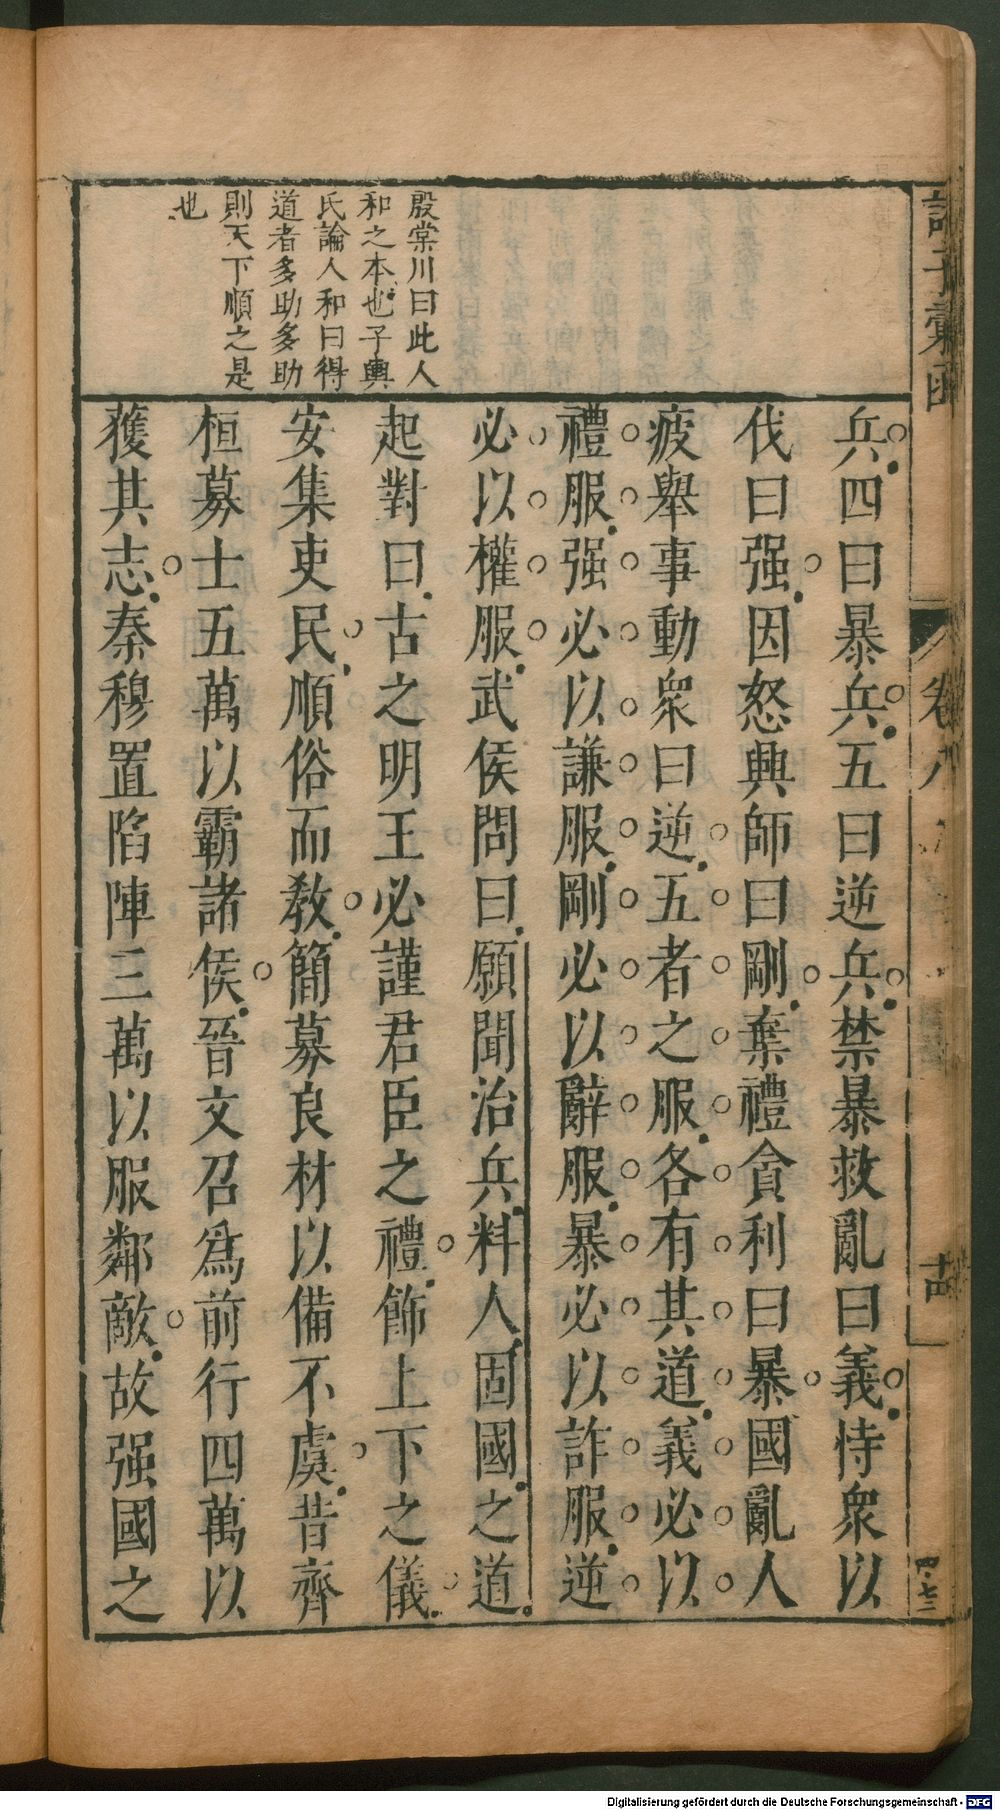 殷棠川曰此人
和之本也子輿
氏論人和曰得
道者多助多助
則天下順之是
也
兵四曰暴兵五曰逆兵禁暴救亂曰義恃衆以
伐曰强因怒興師曰剛棄禮貪利曰暴國亂人
疲舉事動衆曰逆五者之服各有其道義必以
禮服强必以謙服剛必以辭服暴必以詐服逆
必以權服武侯問曰願聞治兵料人固國之道
起對曰古之明王必謹君臣之禮飾上下之儀
安集吏民順俗而教簡募良材以備不虞昔齊
桓募士五萬以霸諸侯晉文召爲前行四萬以
獲其志秦穆置陷陣三萬以服鄰敵故强國之
子彙函
卷八
十四
四·七三
Digitalisierung gefördert durch die Deutsche Forschungsgemeinschaft - DFG